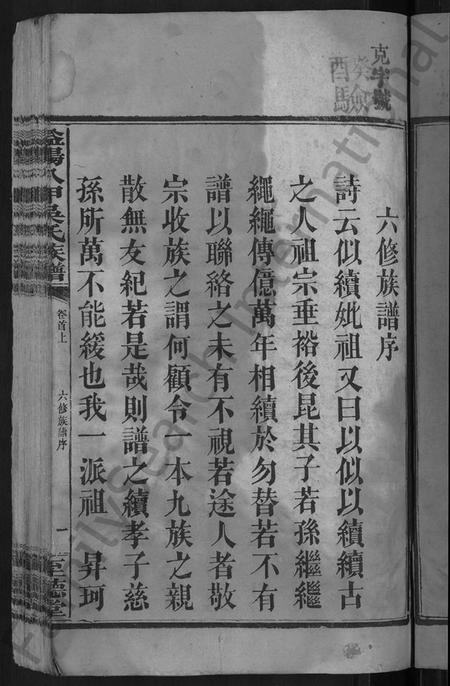 克字號
癸酉
六修族譜序
詩云似續妣祖又曰以似以續續古
之人祖宗垂裕後昆其子若孫繼繼
繩繩傳億萬年相續於勿替若不有
譜以聯絡之未有不視若途人者敬
宗收族之謂何顧令一本九族之親
散無友紀若是哉則譜之續孝子慈
孫所萬不能緩也我一派祖 昇珂
益陽八甲吳氏族譜
卷首上
六修族譜序
一
至德堂
FamilySearch International